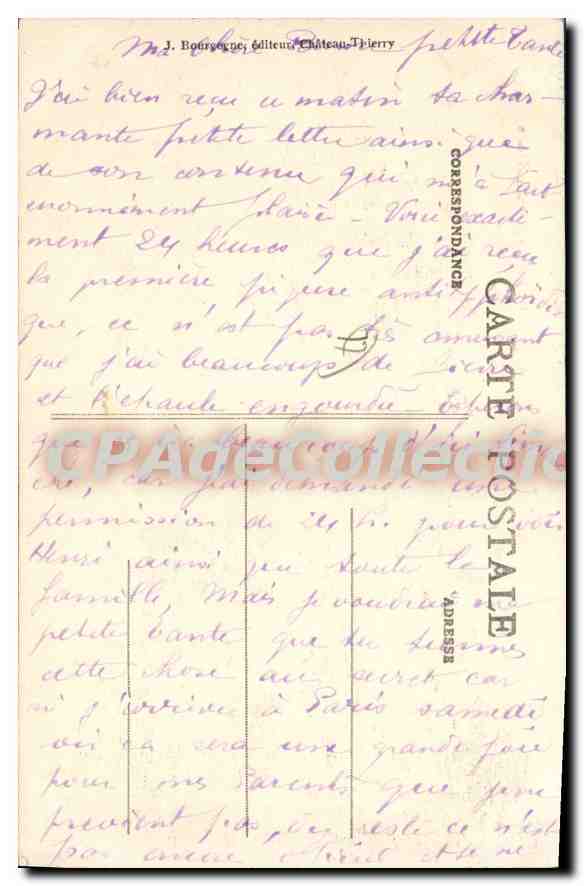 J. Bourgogne, éditeur, Château-Thierry
Ma chère petite Tante
J'ai bien reçu ce matin ta char-
mante petite lettre ainsi que
de son contenu qui m'a fait
énormément plaisir - Voici exacte-
ment 24 heures que j'ai reçu
la première piqure anti
que, ce n'est pas
que j'ai beaucoup de fièvre
et l'épaule engourdie
que beaucoup d'ici
car j'ai demandé une
permission de 24 h. pour voir
Henri ainsi que toute la
famille, Mais je voudrais ma
petite Tante que tu tiennes
cette chose au secret car
si j'arrive à Paris samedi
soir ça sera une grande joie
pour mes Parents que je ne
prévient pas, du reste ce n'est
pas encore officiel et je ne
77
CORRESPONDANCE
CARTE POSTALE
ADRESSE
CPADeCollection